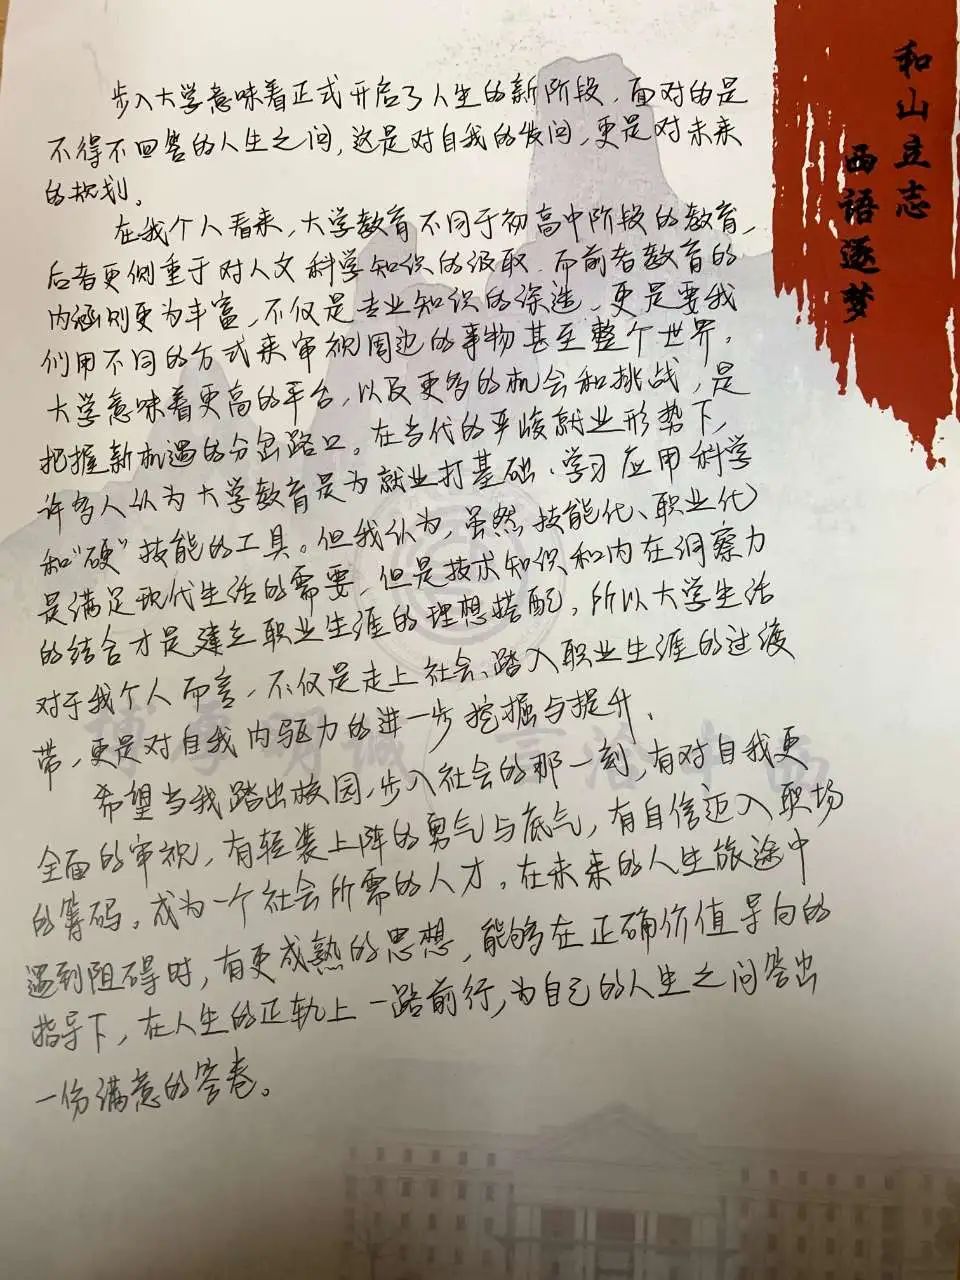 和山立志
西语逐梦
步入大学意味着正式开启了人生的新阶段，面对的是
不得不回答的人生之问，这是对自我的发问，更是对未来
的规划。
在我个人看来，大学教育不同于初高中阶段的教育，
后者更侧重于对人文科学知识的汲取，而前者教育的
内涵则更为丰富，不仅是专业知识的深造，更是要我
们用不同的方式来审视周边的事物甚至整个世界。
大学意味着更高的平台，以及更多的机会和挑战，是
把握新机遇的分岔路口。在当代的严峻就业形势下，
许多人认为大学教育是为就业打基础、学习应用科学
和“硬”技能的工具。但我认为，虽然技能化、职业化
是满足现代生活的需要，但是技术知识和内在洞察力
的结合才是建立职业生涯的理想搭配，所以大学生活
对于我个人而言，不仅是走上社会、踏入职业生涯的过渡
带，更是对自我内驱力的进一步挖掘与提升。
希望当我踏出校园，步入社会的那一刻，有对自我更
全面的审视，有轻装上阵的勇气与底气，有自信迈入职场
的筹码，成为一个社会所需的人才。在未来的人生旅途中
遇到阻碍时，有更成熟的思想，能够在正确价值导向的
指导下，在人生的正轨上一路前行，为自己的人生之问答出
一份满意的答卷。
博厚明诚